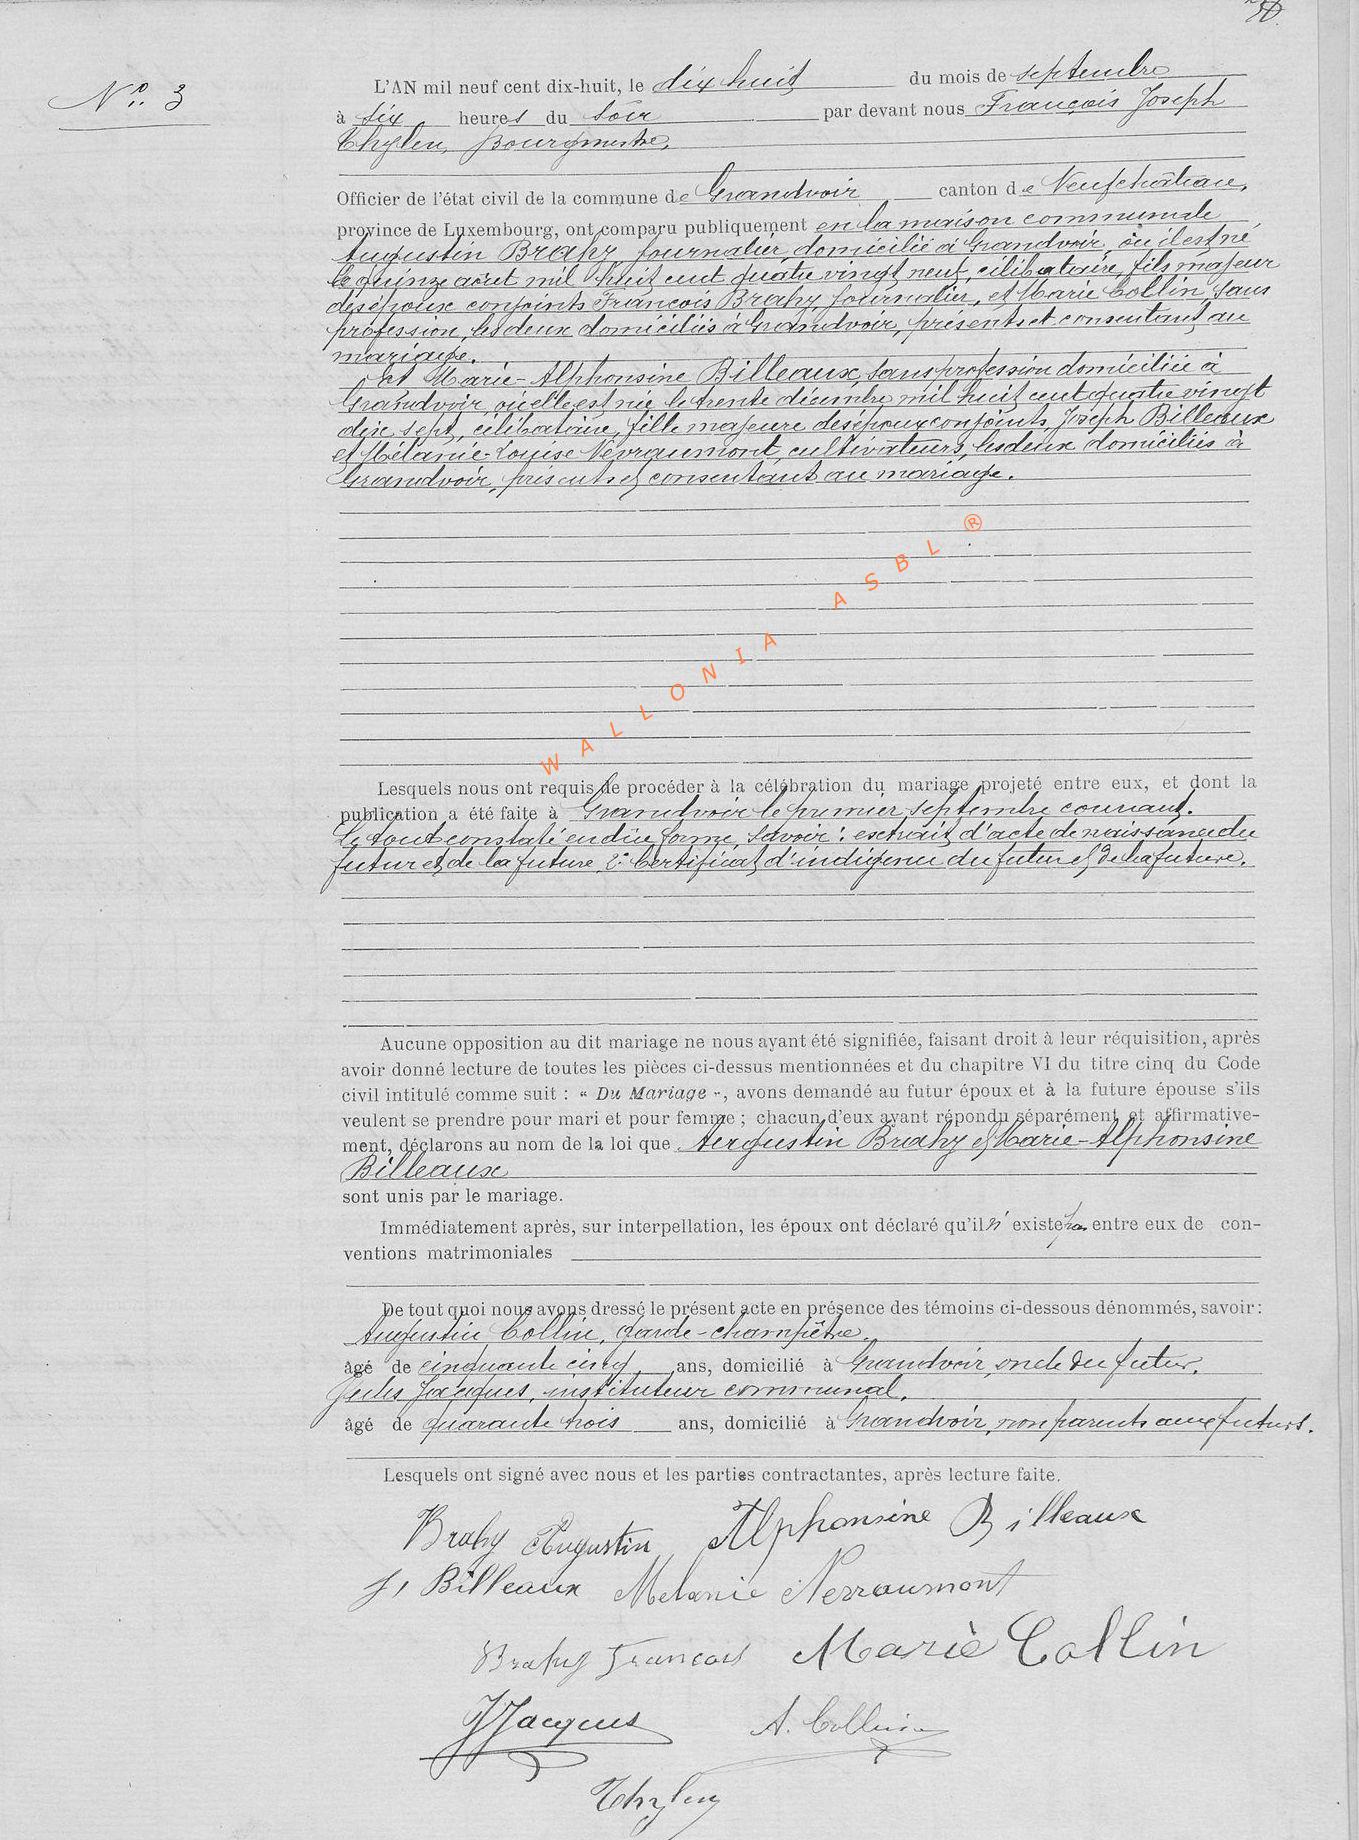 Nº 3
L'AN mil neuf cent dix-huit, le dix huit du mois de septembre
à six heures du soir par devant nous François Joseph
Thylen, Bourgmestre,
Officier de l'état civil de la commune de Grandvoir canton de Neufchâteau,
province de Luxembourg, ont comparu publiquement en la maison communale
Augustin Brahy, journalier, domicilié à Grandvoir, où il est né
le quinze août mil huit cent quatre vingt neuf, célibataire, fils majeur
des époux conjoints François Brahy, journalier, et Marie Collin, sans
profession, les deux domiciliés à Grandvoir, présents et consentant au
mariage.
Et Marie-Alphonsine Billeaux, sans profession domiciliée à
Grandvoir, où elle est née le trente décembre mil huit cent quatre vingt
dix sept, célibataire, fille majeure des époux conjoints Joseph Billeaux
et Mélanie-Louise Nevraumont, cultivateurs, les deux domiciliés à
Grandvoir, présents et consentant au mariage.
WALLONIA ASBL ®
Lesquels nous ont requis de procéder à la célébration du mariage projeté entre eux, et dont la
publication a été faite à Grandvoir le premier septembre courant.
Le tout constaté en due forme, savoir : extrait d'acte de naissance du
futur et de la future, 2º Certificat d'indigence du futur et de la future.
Aucune opposition au dit mariage ne nous ayant été signifiée, faisant droit à leur réquisition, après
avoir donné lecture de toutes les pièces ci-dessus mentionnées et du chapitre VI du titre cinq du Code
civil intitulé comme suit : « Du Mariage », avons demandé au futur époux et à la future épouse s'ils
veulent se prendre pour mari et pour femme ; chacun d'eux ayant répondu séparément et affirmative-
ment, déclarons au nom de la loi que Augustin Brahy et Marie-Alphonsine
Billeaux
sont unis par le mariage.
Immédiatement après, sur interpellation, les époux ont déclaré qu'il n'existe pas entre eux de con-
ventions matrimoniales
De tout quoi nous avons dressé le présent acte en présence des témoins ci-dessous dénommés, savoir :
Augustin Collin, garde-champêtre,
âgé de cinquante cinq ans, domicilié à Grandvoir, oncle du futur.
Jules Jacques, instituteur communal,
âgé de quarante trois ans, domicilié à Grandvoir, non parents aux futurs.
Lesquels ont signé avec nous et les parties contractantes, après lecture faite.
Brahy Augustin Alphonsine Billeaux
J, Billeaux Melanie Nerraumont
Brahy François Marie Collin
J Jacques A. Collin
Thylen